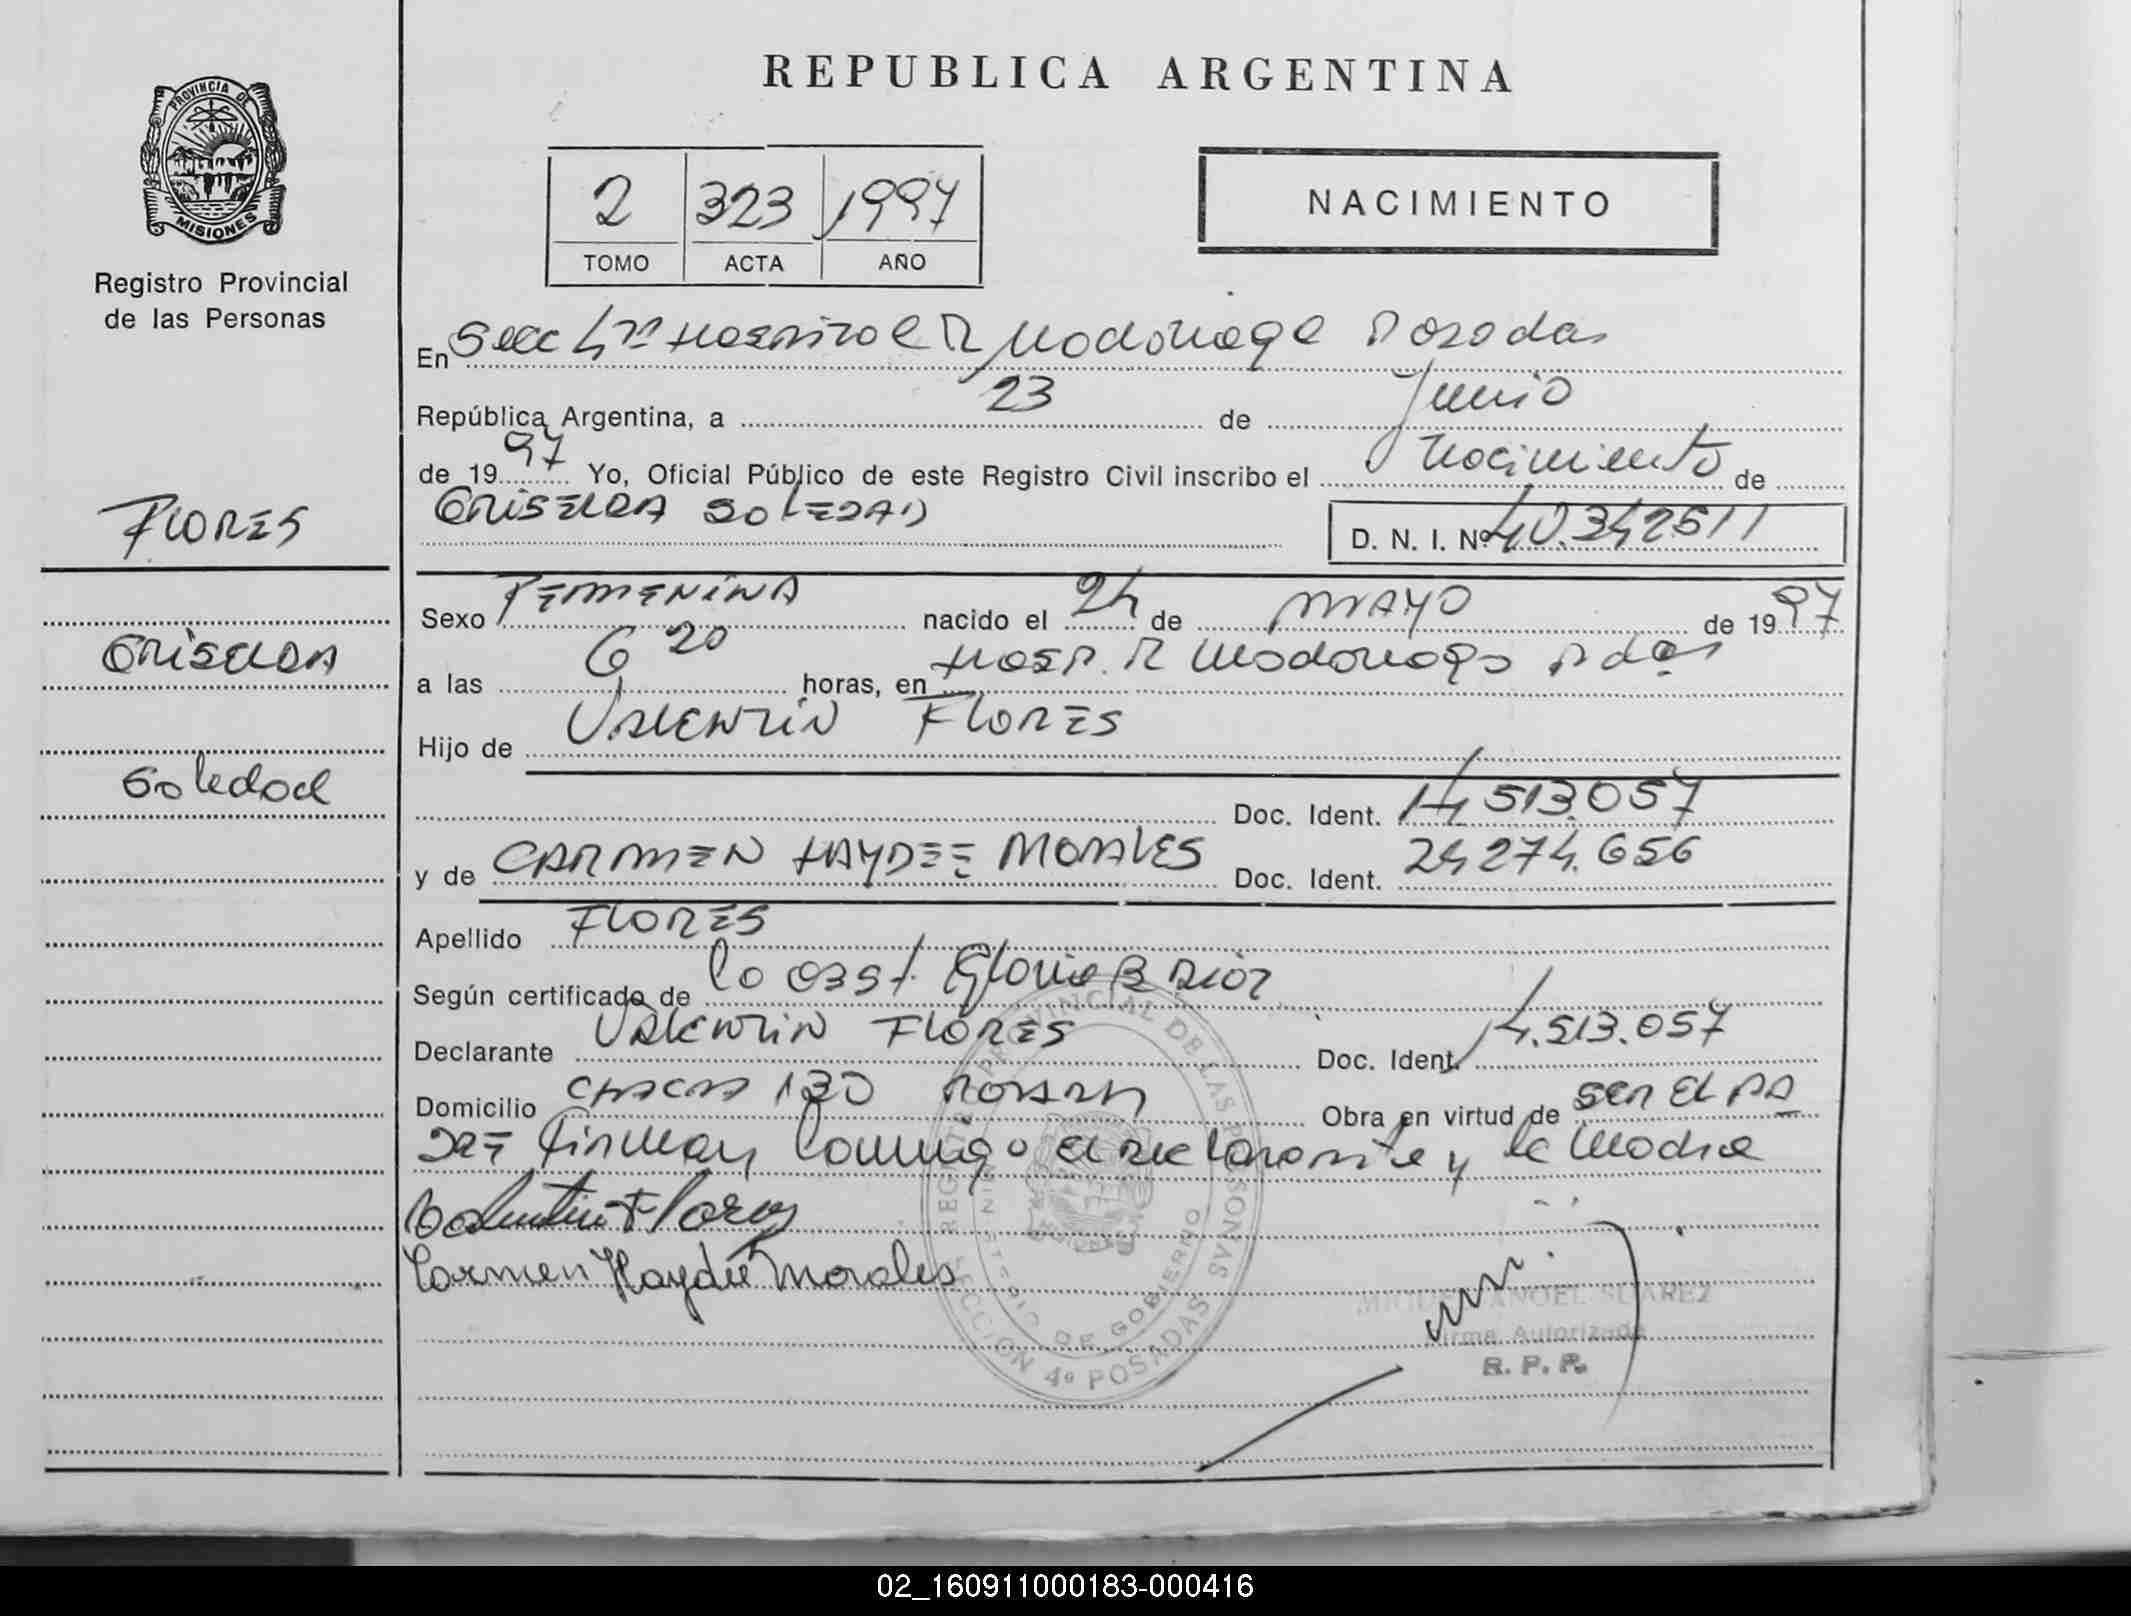 PROVINCIA DE
MISIONES
Registro Provincial
de las Personas
FLORES
GRISELDA
Soledad
REPUBLICA ARGENTINA
2 323 1997
TOMO ACTA AÑO
NACIMIENTO
En Secc 4ta Hospital R Madariaga Posadas
República Argentina, a 23 de Junio
de 1997 Yo, Oficial Público de este Registro Civil inscribo el Nacimiento de
GRISELDA SOLEDAD D. N. I. Nº 40.342511
Sexo FEMENINA nacido el 24 de MAYO de 1997
a las 6 20 horas, en Hosp. R Madariaga Pdas
Hijo de VALENTIN FLORES
Doc. Ident. 14.513.057
y de CARMEN HAYDEE MORALES Doc. Ident. 24274.656
Apellido FLORES
Según certificado de la Obst. Gloria B
Declarante VALENTIN FLORES Doc. Ident. 14.513.057
Domicilio CHACRA 130 Obra en virtud de SER El PA
DRE firman conmigo el declarante y la Madre
Valentin Flores
Carmen Haydeé Morales
REGISTRO PROVINCIAL DE LAS PERSONAS
MINISTERIO DE GOBIERNO
SECCION 4º POSADAS
MIGUEL ANGEL SUAREZ
Firma Autorizada
R. P. P.
02_160911000183-000416